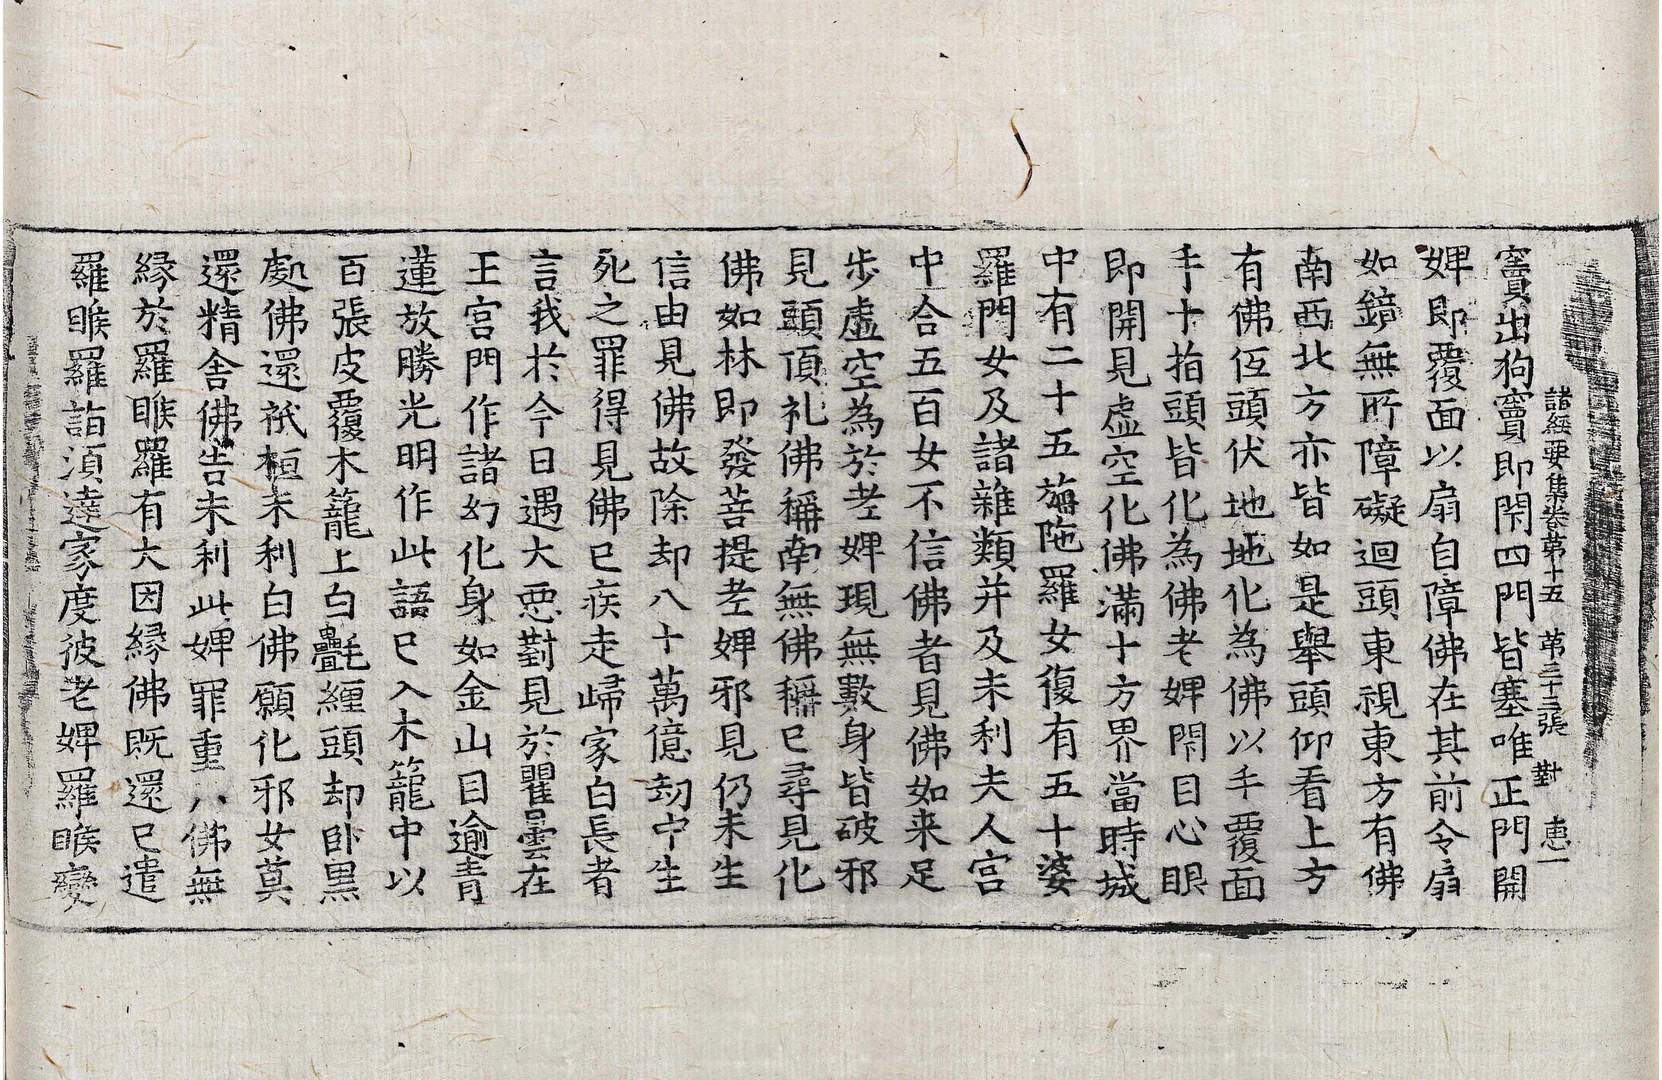 諸經要集卷第十五　第三十三張　對　恵一
竇出狗竇即閇四門皆塞唯正門開
婢即覆面以扇自障佛在其前令扇
如鏡無所障礙迴頭東視東方有佛
南西北方亦皆如是舉頭仰看上方
有佛佂頭伏地地化為佛以手覆面
手十指頭皆化為佛老婢閇目心眼
即開見虛空化佛滿十方界當時城
中有二十五旃陁羅女復有五十婆
羅門女及諸雜類并及末利夫人宮
中合五百女不信佛者見佛如来足
步虛空為於老婢現無數身皆破邪
見頭頂礼佛稱南無佛稱已尋見化
佛如林即發菩提老婢邪見仍未生
信由見佛故除却八十萬億劫中生
死之罪得見佛已疾走歸家白長者
言我於今日遇大惡對見於瞿曇在
王宮門作諸幻化身如金山目逾青
蓮放勝光明作此語已入木籠中以
百張皮覆木籠上白㲲纏頭却卧黒
處佛還祇桓末利白佛願化邪女莫
還精舍佛告末利此婢罪重八佛無
緣於羅睺羅有大因緣佛既還已遣
羅睺羅詣湏達家度彼老婢羅睺變